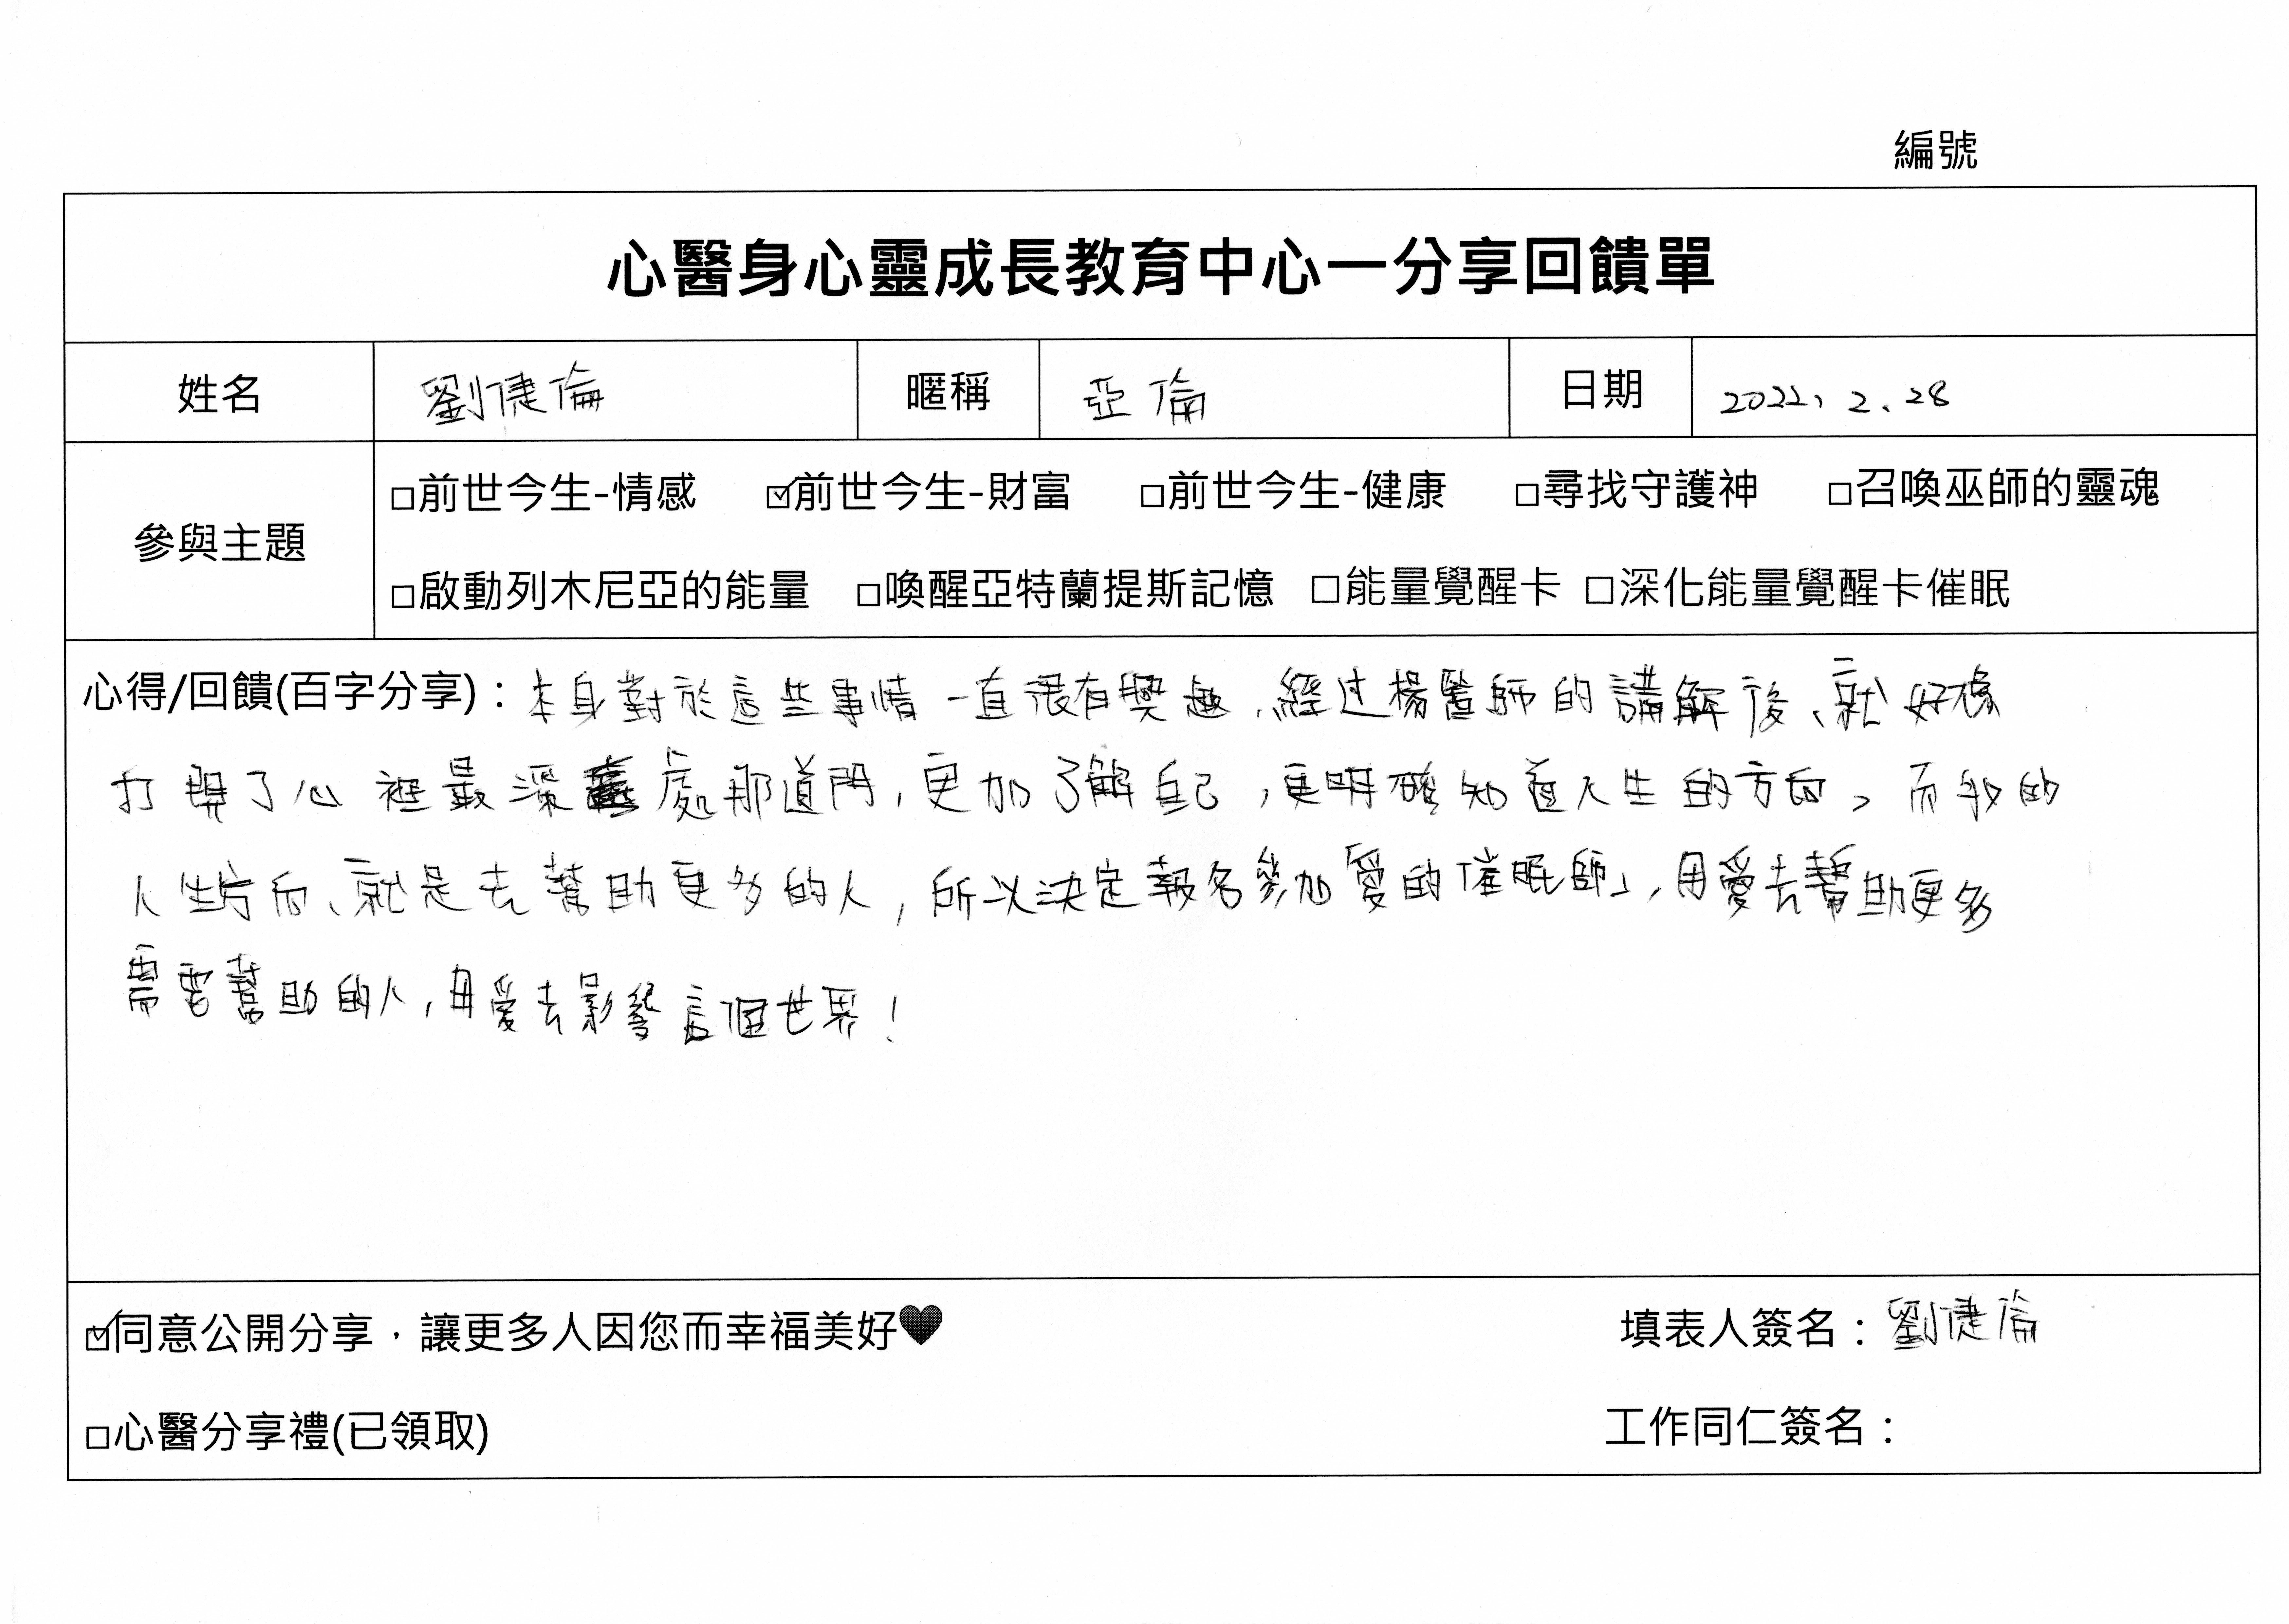 編號
心醫身心靈成長教育中心一分享回饋單
姓名 劉倢倫 暱稱 亞倫 日期 2022、2、28
參與主題
□前世今生-情感 ☑前世今生-財富 □前世今生-健康 □尋找守護神 □召喚巫師的靈魂
□啟動列木尼亞的能量 □喚醒亞特蘭提斯記憶 □能量覺醒卡 □深化能量覺醒卡催眠
心得/回饋(百字分享)：本身對於這些事情一直很有興趣，經过楊醫師的講解後、就好像
打開了心裡最深處那道門，更加了解自己，更明確知道人生的方向，而我的
人生方向、就是去幫助更多的人，所以決定報名參加「愛的催眠師」，用愛去幫助更多
需要幫助的人，用愛去影響這個世界！
☑同意公開分享，讓更多人因您而幸福美好♥ 填表人簽名：劉倢倫
□心醫分享禮(已領取) 工作同仁簽名：